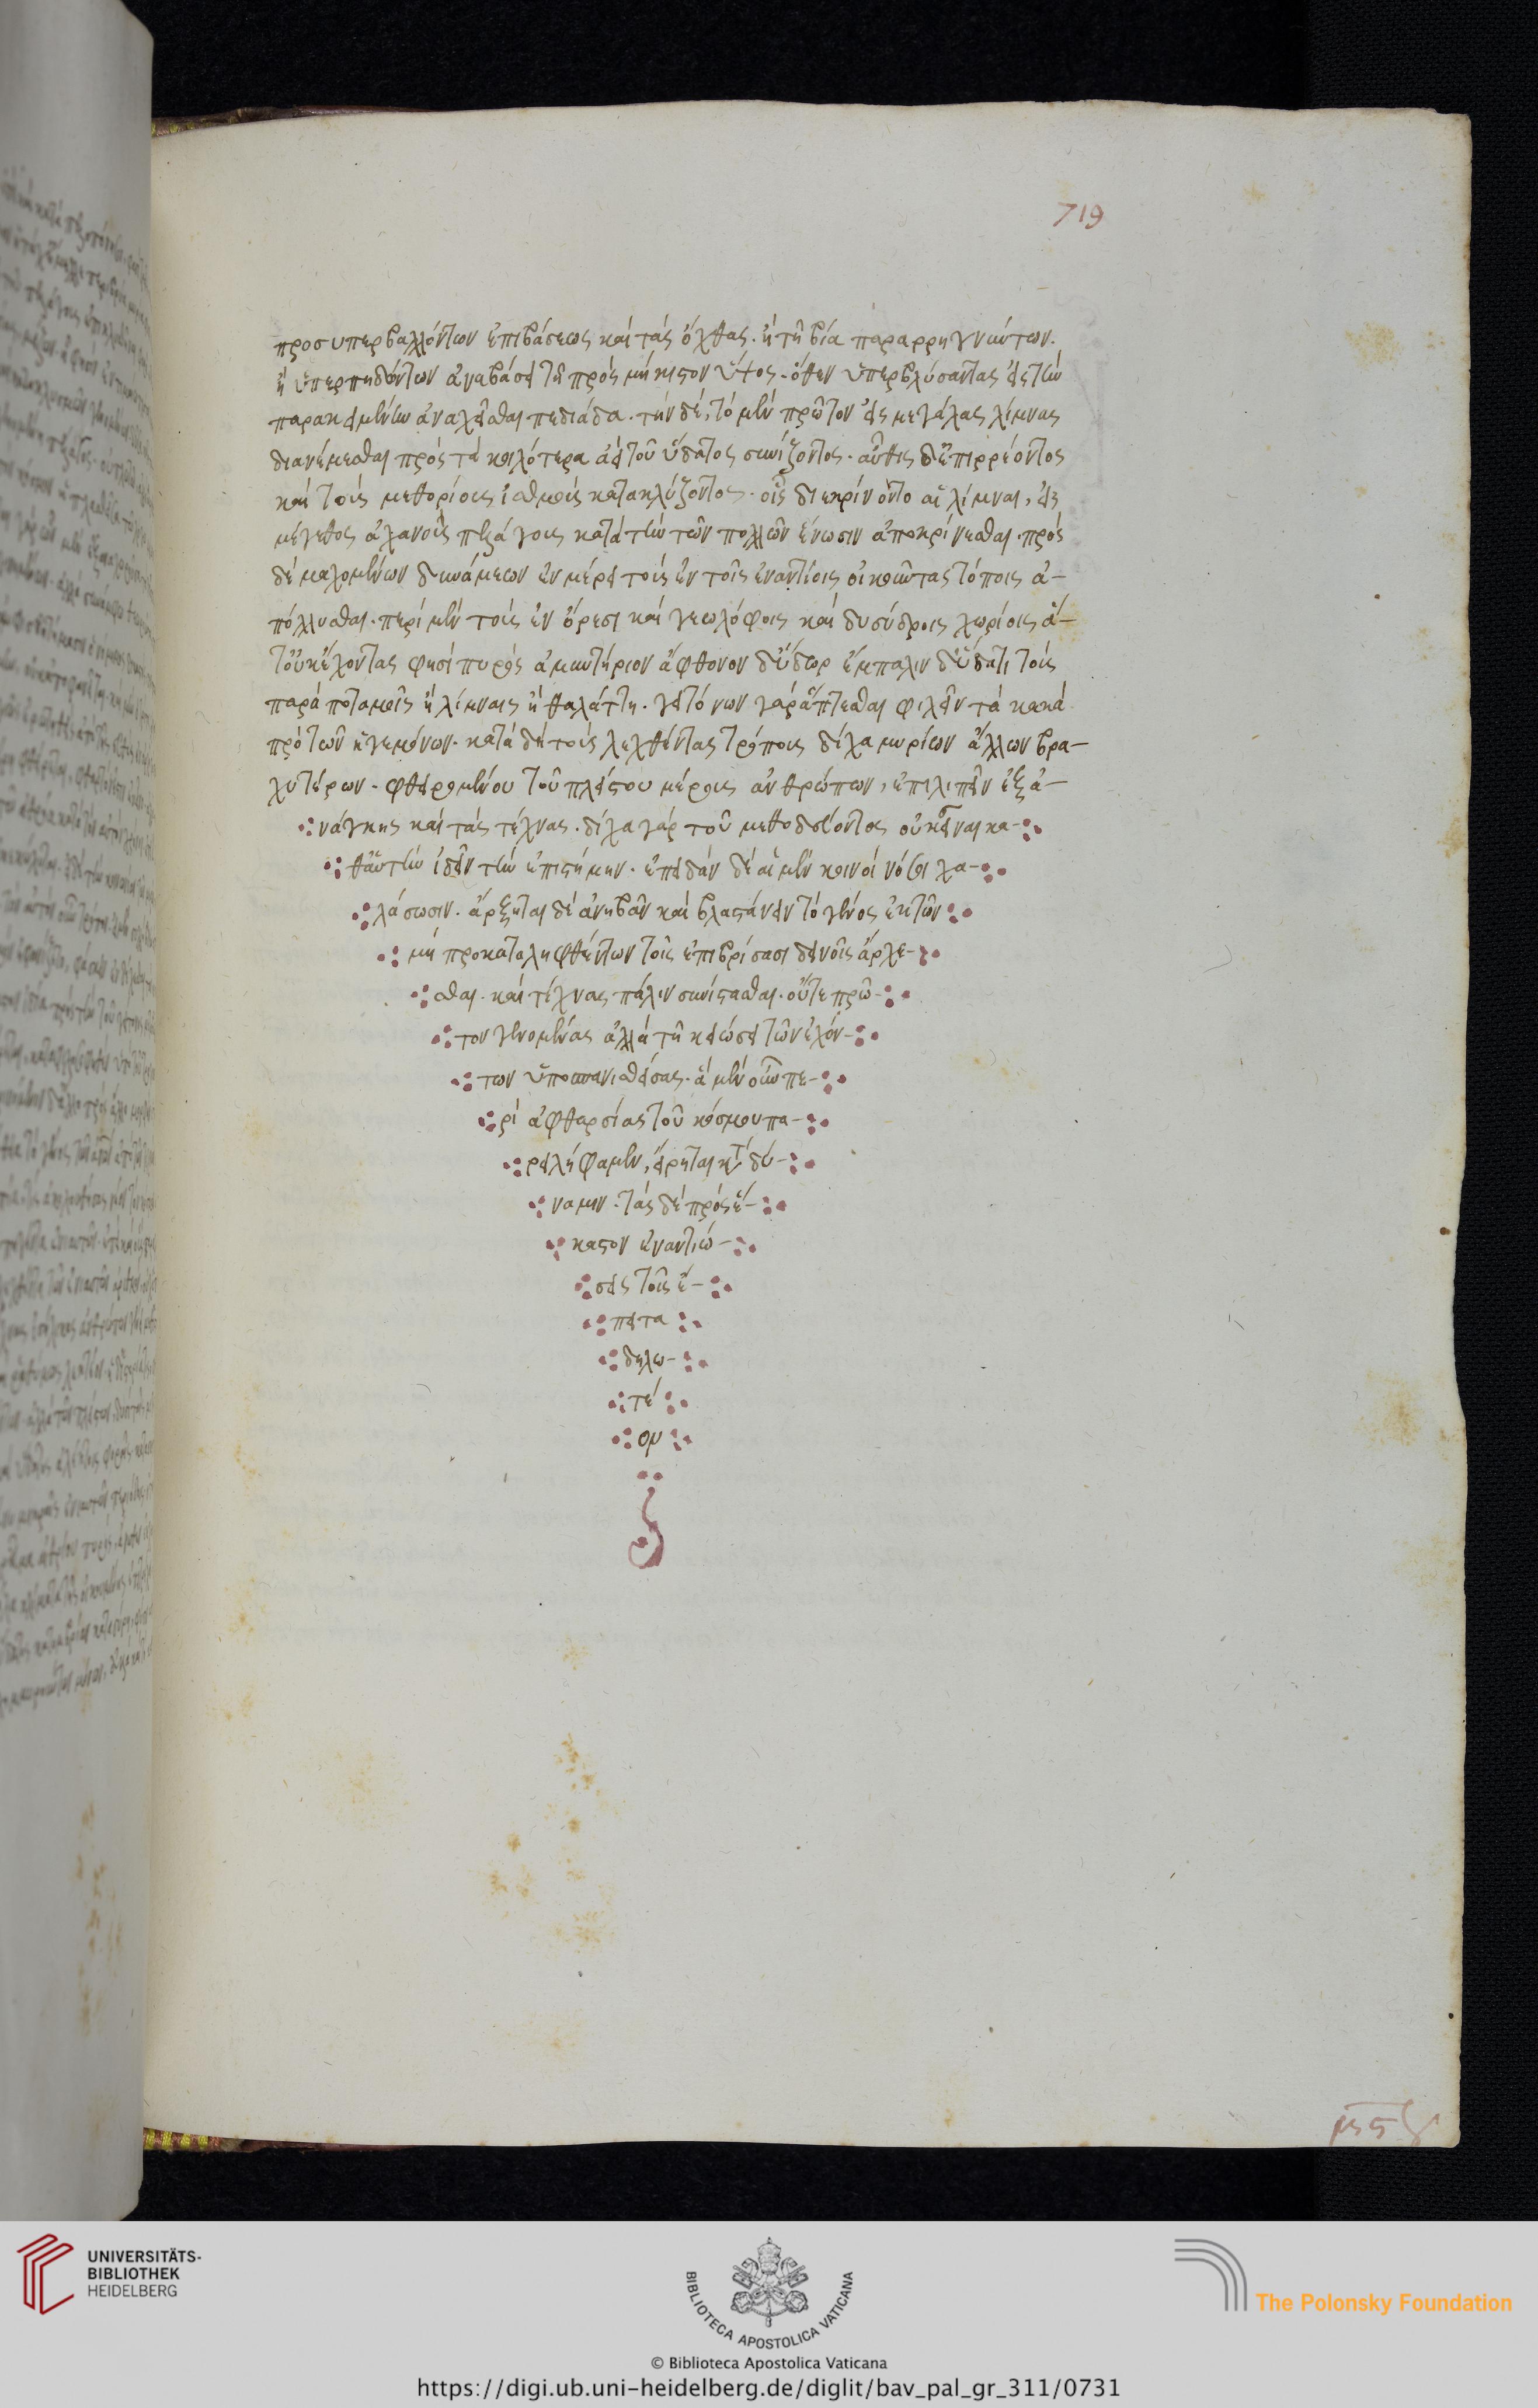 719
προσυπερβαλλόντων ἐπιβάσεως καὶ τὰς ὄχθας. ἢ τῇ βίᾳ παραρρηγνύντων.
ἢ ὑπερπηδόντων ἀναβάσει τῇ πρὸς μήκιστον ὕψος. ὅθεν ὑπερβλύσαντας εἰς τὴν
παρακειμένων ἀναχεῖσθαι πεδιάδα. τὴν δὲ, τὸ μὲν πρῶτον εἰς μεγάλας λίμνας
διανέμεσθαι πρὸς τὰ κοιλότερα ἀεὶ τοῦ ὕδατος συνίζοντος. αὖθις δ' ἐπιρρέοντος
καὶ τοὺς μεθορίους ἰσθμοὺς κατακλύζοντος. οἷς διεκρίνοντο αἱ λίμναι, εἰς
μέγεθος ἀχανοῦς πελάγους κατὰ τὴν τῶν πολλῶν ἕνωσιν ἀποκρίνεσθαι. πρὸς
δὲ μαχομένων δυνάμεων ἐν μέρει τοὺς ἐν τοῖς ἐναντίοις οἰκοῦντας τόποις ἀ-
πόλλυσθαι. περὶ μὲν τοὺς ἐν ὄρεσι καὶ γεωλόφοις καὶ δυσύδροις χωρίοις ἀ-
τ' οὐκ ἔχοντας φησὶ πυρὸς ἀμυντήριον ἄφθονον δ' ὕδωρ ἔμπαλιν δ' ὕδατι τοὺς
παρὰ ποταμοῖς ἢ λίμναις ἢ θαλάττῃ. γειτόνων γὰρ ἅπτεσθαι φιλεῖν τὰ κακὰ
πρὸ τῶν ἡγεμόνων. κατὰ δὴ τοὺς λεχθέντας τρόπους δίχα μυρίων ἄλλων βρα-
χυτέρων. φθειρομένου τοῦ πλείστου μέρους ἀνθρώπων, ἐπιλιπεῖν ἐξ ἀ-
νάγκης καὶ τὰς τέχνας. δίχα γὰρ τοῦ μεθοδεύοντος οὐκ εἶναι κα-
θ' αὑτὴν ἰδεῖν τὴν ἐπιστήμην. ἐπειδὰν δὲ αἱ μὲν κοιναὶ νόσοι χα-
λάσωσιν. ἄρξηται δὲ ἀνηβᾶν καὶ βλαστάνειν τὸ γένος ἐκ τῶν
μὴ προκαταληφθέντων τοῖς ἐπιβρίσασι δεινοῖς ἄρχε-
σθαι. καὶ τέχνας πάλιν συνίστασθαι. οὔτε πρῶ-
τον γενομένας ἀλλὰ τῇ κειώσει τῶν ἐχόν-
των ὑποσπανισθείσας. ἃ μὲν οὖν πε-
ρὶ ἀφθαρσίας τοῦ κόσμου πα-
ρειλήφαμεν, εἴρηται κατὰ δύ-
ναμιν. τὰς δὲ πρὸς ἕ-
καστον ἐναντιώ-
σεις τοῖς ἔ-
πειτα
δηλω-
τέ
ον
© Biblioteca Apostolica Vaticana
UNIVERSITÄTS-
BIBLIOTHEK
HEIDELBERG
BIBLIOTECA APOSTOLICA VATICANA
The Polonsky Foundation
https://digi.ub.uni-heidelberg.de/diglit/bav_pal_gr_311/0731